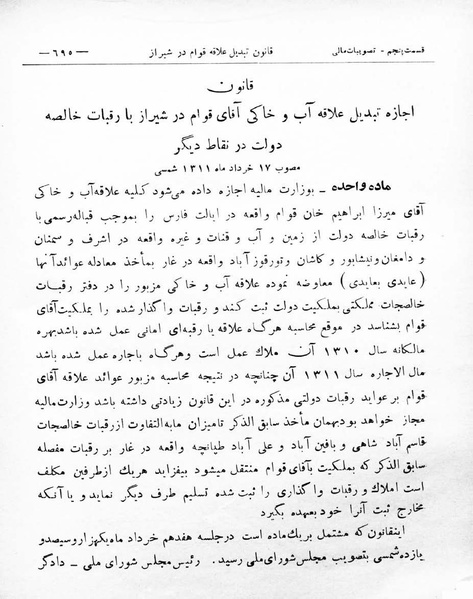 قسمت پنجم - تصویبات مالی    قانون تبدیل علاقه قوام در شیراز    — ٦٩٥ —
قانون
اجازه تبدیل علاقه آب و خاکی آقای قوام در شیراز با رقبات خالصه
دولت در نقاط دیگر
مصوب ١٧ خرداد ماه ١٣١١ شمسی
ماده واحده ـ بوزارت مالیه اجازه داده میشود کلیه علاقه آب و خاکی
آقای میرزا ابراهیم خان قوام واقعه در ایالت فارس را بموجب قباله رسمی با
رقبات خالصه دولت از زمین و آب و قنات و غیره واقعه در اشرف و سمنان
و دامغان ونیشابور و کاشان وتورقوز آباد واقعه در غار بمأخذ معادله عوائد آنها
(عایدی بعایدی) معاوضه نموده علاقه آب و خاکی مزبور را در دفتر رقبات
خالصجات مملکتی بملکیت دولت ثبت کند و رقبات واگذار شده را بملکیت آقای
قوام بشناسد در موقع محاسبه هرگاه علاقه یا رقبه‌ای امانی عمل شده باشد بهره
مالکانه سال ١٣١٠ آن ملاك عمل است وهرگاه باجاره عمل شده باشد
مال الاجاره سال ١٣١١ آن چنانچه در نتیجه محاسبه مزبور عوائد علاقه آقای
قوام بر عواید رقبات دولتی مذکوره در این قانون زیادتی داشته باشد وزارت مالیه
مجاز خواهد بود بهمان مأخذ سابق الذکر تامیزان مابه التفاوت از رقبات خالصجات
قاسم آباد شاهی و بافین آباد و علی آباد طپانچه واقعه در غار بر رقبات مفصله
سابق الذکر که بملکیت بآقای قوام منتقل میشود بیفزاید هر یك از طرفین مکلف
است املاك و رقبات واگذاری را ثبت شده تسلیم طرف دیگر نماید و یا آنکه
مخارج ثبت آنرا خود بعهده بگیرد
اینقانون که مشتمل بر یك ماده است در جلسه هفدهم خرداد ماه یکهزار وسیصد و
یازده شمسی بتصویب مجلس شورای ملی رسید. رئیس مجلس شورای ملی - دادگر